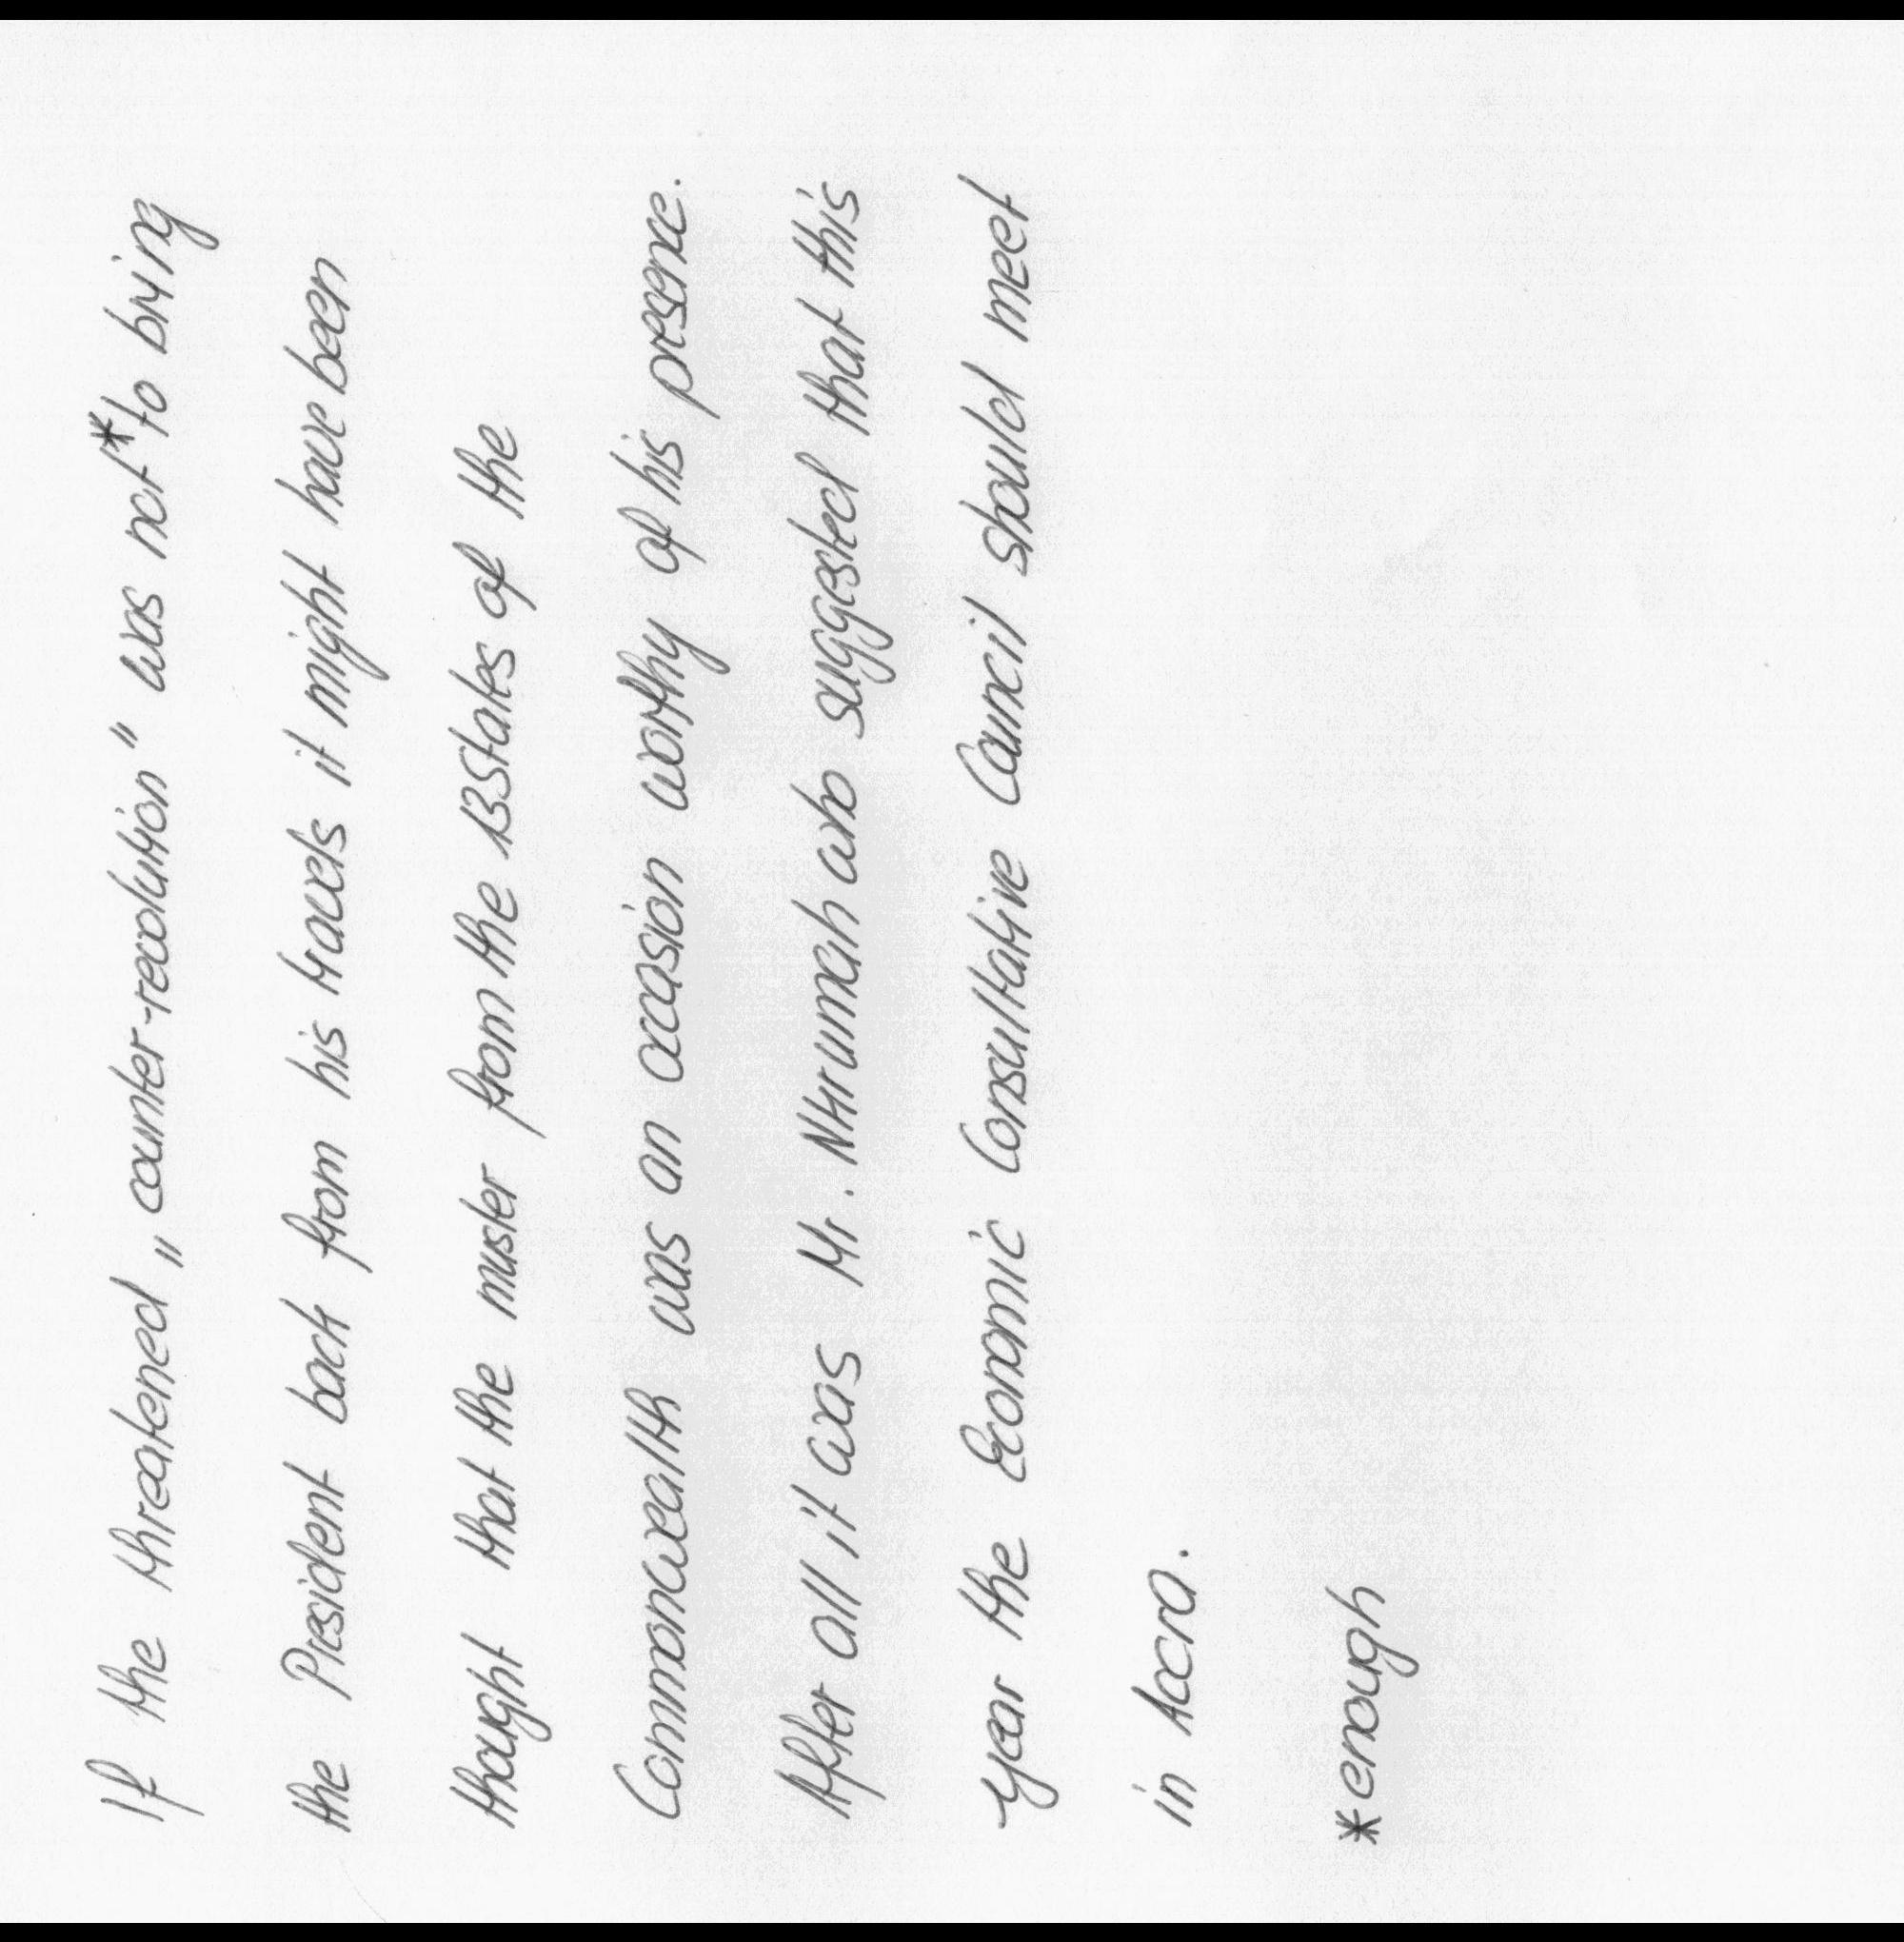 If the threatened „counter-revolution" was not* to bring
the President back from his travels it might have been
thought that the muster from the 13 States of the
Commonwealth was an occasion worthy of his presence.
After all it was Mr. Nkrumah who suggested that this
year the Economic Consultative Council should meet
in Accra.
*enough